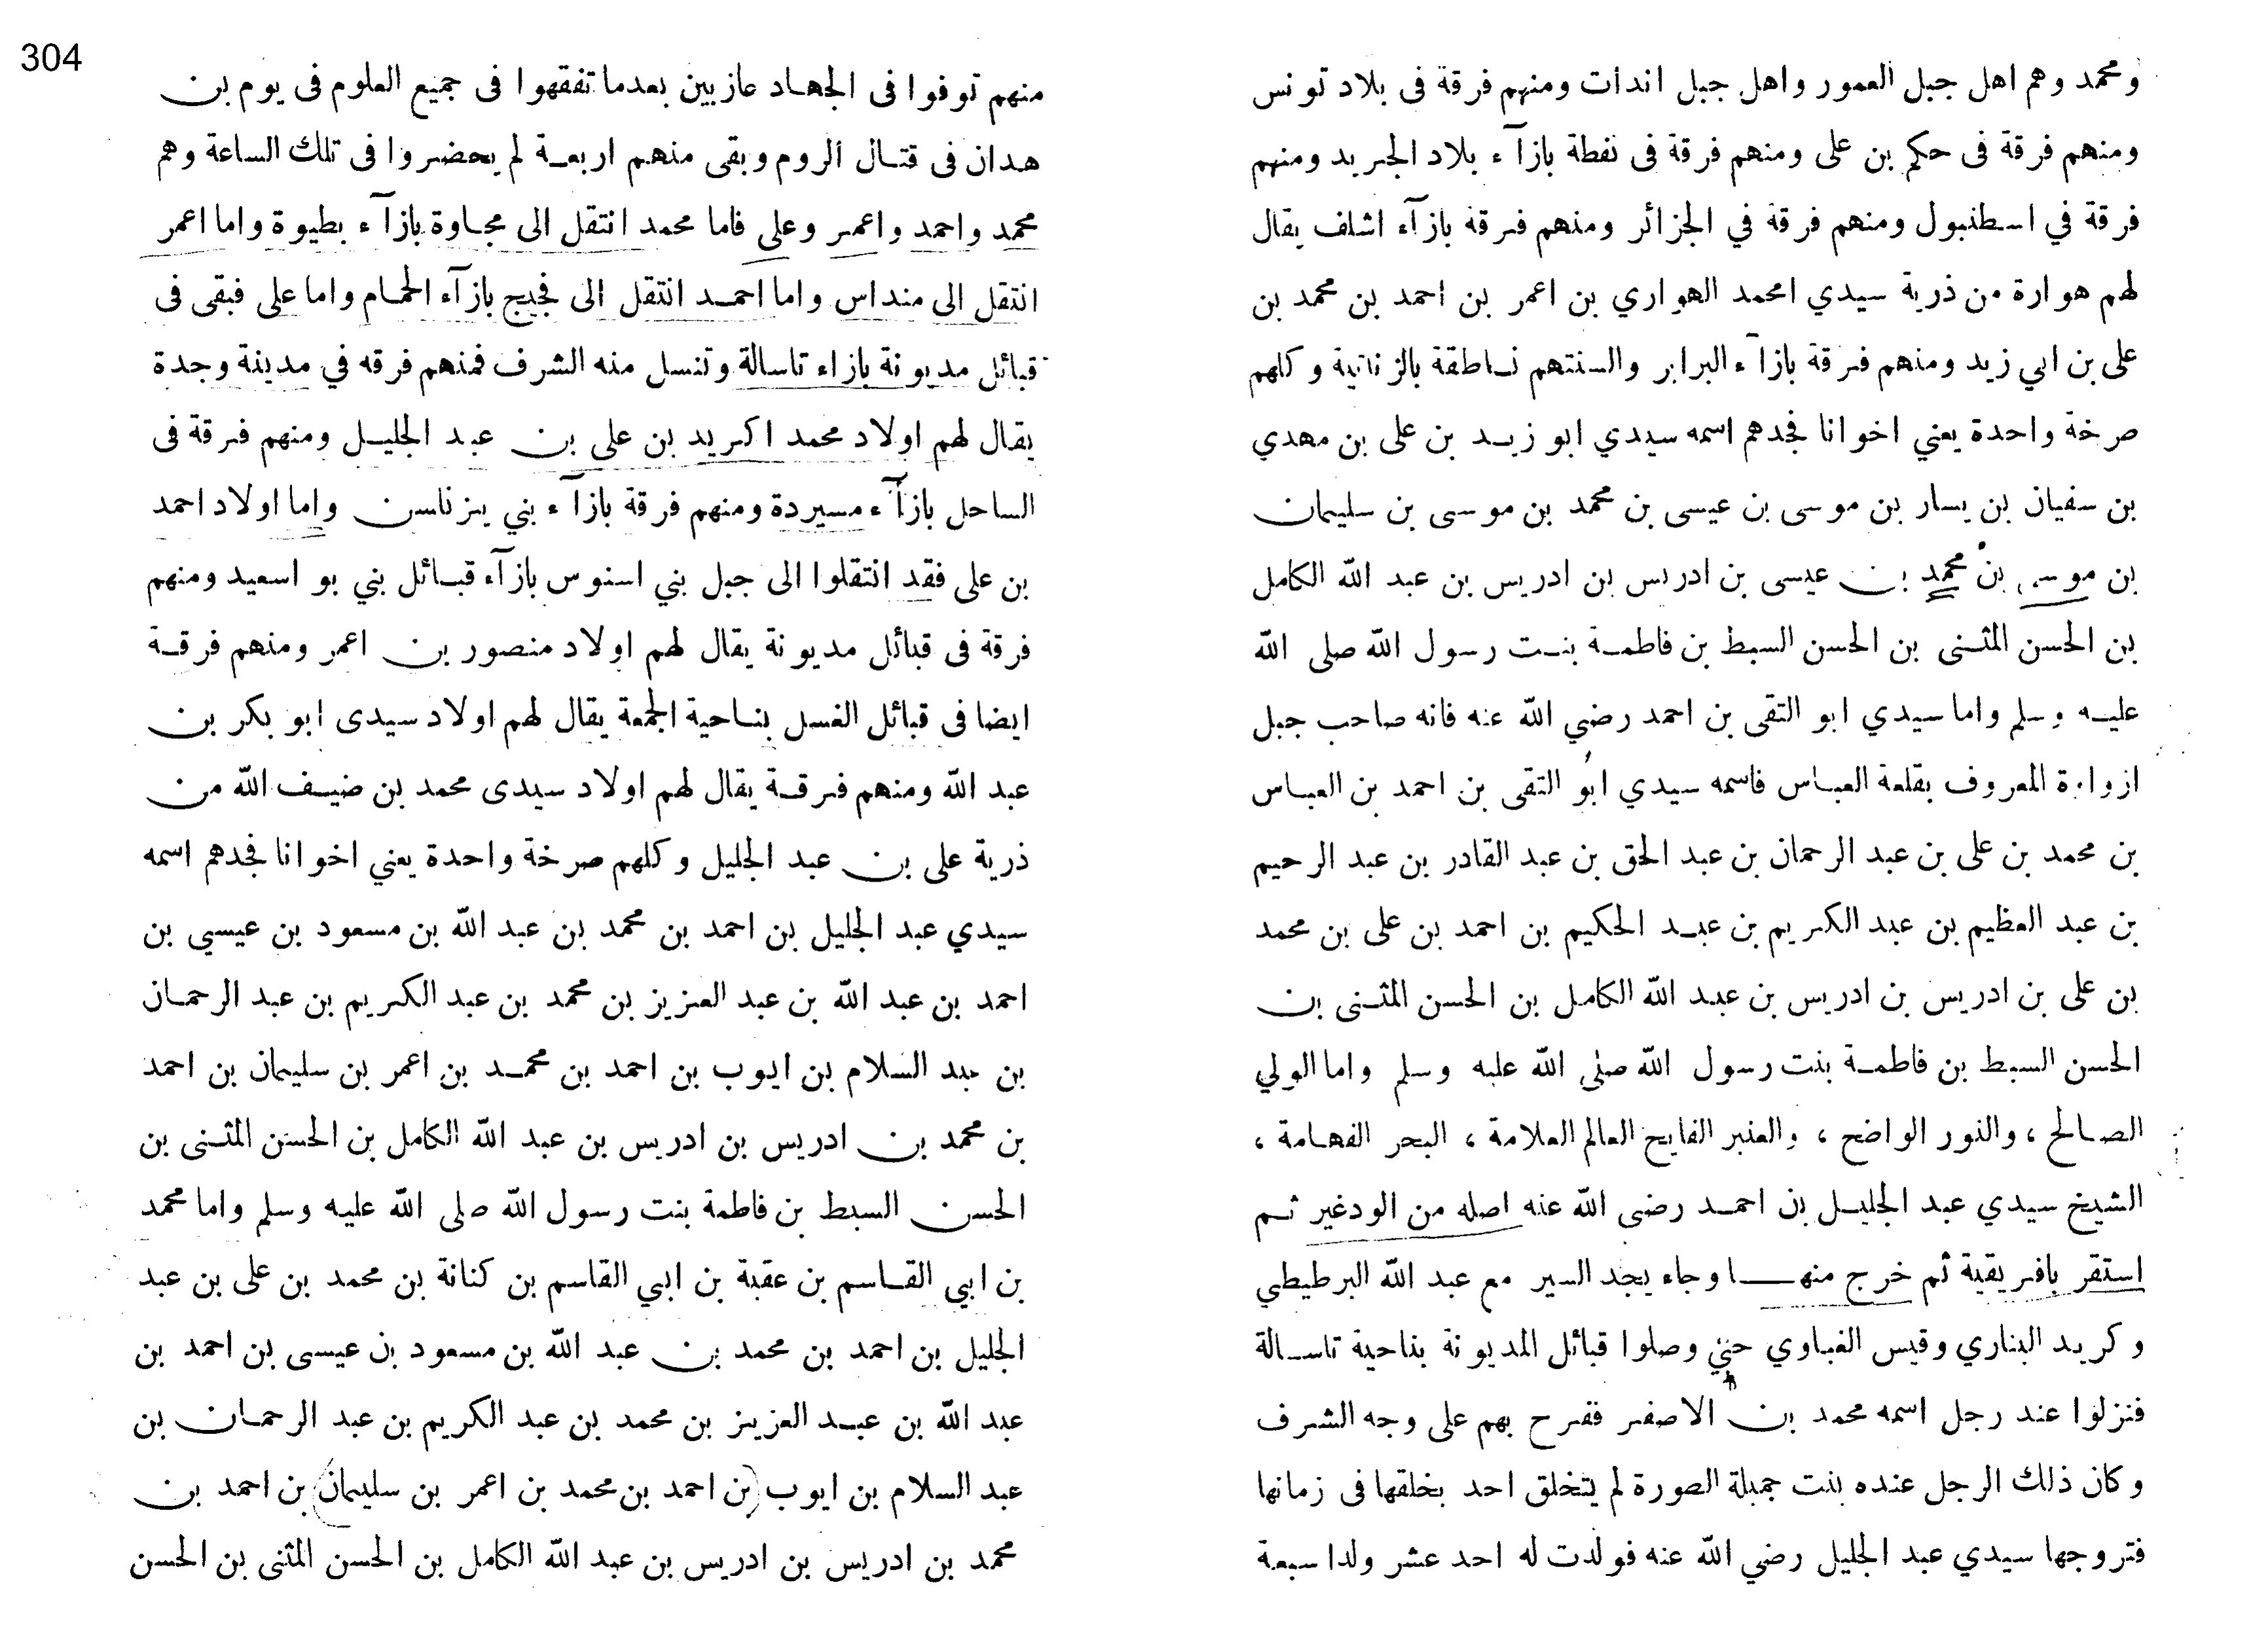 304
ومحمد وهم اهل جبل العمور واهل جبل اندات ومنهم فرقة فى بلاد تونس
ومنهم فرقة فى حكم بن على ومنهم فرقة فى نفطة بازآء بلاد الجريد ومنهم
فرقة في اسطنبول ومنهم فرقة في الجزائر ومنهم فرقة بازآء اشلف يقال
لهم هوارة من ذرية سيدي امحمد الهواري بن اعمر بن احمد بن محمد بن
على بن ابي زيد ومنهم فرقة بازآء البرابر والسنتهم ناطقة بالزناتية وكلهم
صرخة واحدة يعني اخوانا فجدهم اسمه سيدي ابو زيد بن على بن مهدي
بن سفيان بن يسار بن موسى بن عيسى بن محمد بن موسى بن سليمان
بن موسى بن محمد بن عيسى بن ادريس بن ادريس بن عبد الله الكامل
بن الحسن المثنى بن الحسن السبط بن فاطمة بنت رسول الله صلى الله
عليه وسلم واما سيدي ابو التقى بن احمد رضي الله عنه فانه صاحب جبل
ازواوة المعروف بقلعة العباس فاسمه سيدي ابو التقى بن احمد بن العباس
بن محمد بن على بن عبد الرحمان بن عبد الحق بن عبد القادر بن عبد الرحيم
بن عبد العظيم بن عبد الكريم بن عبد الحكيم بن احمد بن على بن محمد
بن على بن ادريس بن ادريس بن عبد الله الكامل بن الحسن المثنى بن
الحسن السبط بن فاطمة بنت رسول الله صلى الله عليه وسلم واما الولي
الصالح ، والنور الواضح ، والعنبر الفايح العالم العلامة ، البحر الفهامة ،
الشيخ سيدي عبد الجليل بن احمد رضى الله عنه اصله من الودغير ثم
استقر بافريقية ثم خرج منها وجاء يجد السير مع عبد الله البرطيطي
وكريد البناري وقيس الغباوي حتى وصلوا قبائل المديونة بناحية تاسالة
فنزلوا عند رجل اسمه محمد بن الاصفر ففرح بهم على وجه الشرف
وكان ذلك الرجل عنده بنت جميلة الصورة لم يتخلق احد بخلقها فى زمانها
فتروجها سيدي عبد الجليل رضي الله عنه فولدت له احد عشر ولدا سبعة
منهم توفوا فى الجهاد عازبين بعدما تفقهوا فى جميع العلوم فى يوم بن
هدان فى قتال الروم وبقى منهم اربعة لم يحضروا فى تلك الساعة وهم
محمد واحمد واعمر وعلى فاما محمد انتقل الى مجاوة بازآء بطيوة واما اعمر
انتقل الى منداس واما احمد انتقل الى فجيج بازآء الحمام واما على فبقى فى
قبائل مديونة بازاء تاسالة وتنسل منه الشرف فمنهم فرقه في مدينة وجدة
يقال لهم اولاد محمد اكريد بن على بن عبد الجليل ومنهم فرقة فى
الساحل بازآء مسيردة ومنهم فرقة بازآء بني يزناسن واما اولاد احمد
بن على فقد انتقلوا الى جبل بني اسنوس بازآء قبائل بني بو اسعيد ومنهم
فرقة فى قبائل مديونة يقال لهم اولاد منصور بن اعمر ومنهم فرقة
ايضا فى قبائل الغسل بناحية الجمعة يقال لهم اولاد سيدى ابو بكر بن
عبد الله ومنهم فرقة يقال لهم اولاد سيدى محمد بن ضيف الله من
ذرية على بن عبد الجليل وكلهم صرخة واحدة يعني اخوانا فجدهم اسمه
سيدي عبد الجليل بن احمد بن محمد بن عبد الله بن مسعود بن عيسى بن
احمد بن عبد الله بن عبد العزيز بن محمد بن عبد الكريم بن عبد الرحمان
بن عبد السلام بن ايوب بن احمد بن محمد بن اعمر بن سليمان بن احمد
بن محمد بن ادريس بن ادريس بن عبد الله الكامل بن الحسن المثنى بن
الحسن السبط بن فاطمة بنت رسول الله صلى الله عليه وسلم واما محمد
بن ابي القاسم بن عقبة بن ابي القاسم بن كنانة بن محمد بن على بن عبد
الجليل بن احمد بن محمد بن عبد الله بن مسعود بن عيسى بن احمد بن
عبد الله بن عبد العزيز بن محمد بن عبد الكريم بن عبد الرحمان بن
عبد السلام بن ايوب (بن احمد بن محمد بن اعمر بن سليمان) بن احمد بن
محمد بن ادريس بن ادريس بن عبد الله الكامل بن الحسن المثنى بن الحسن